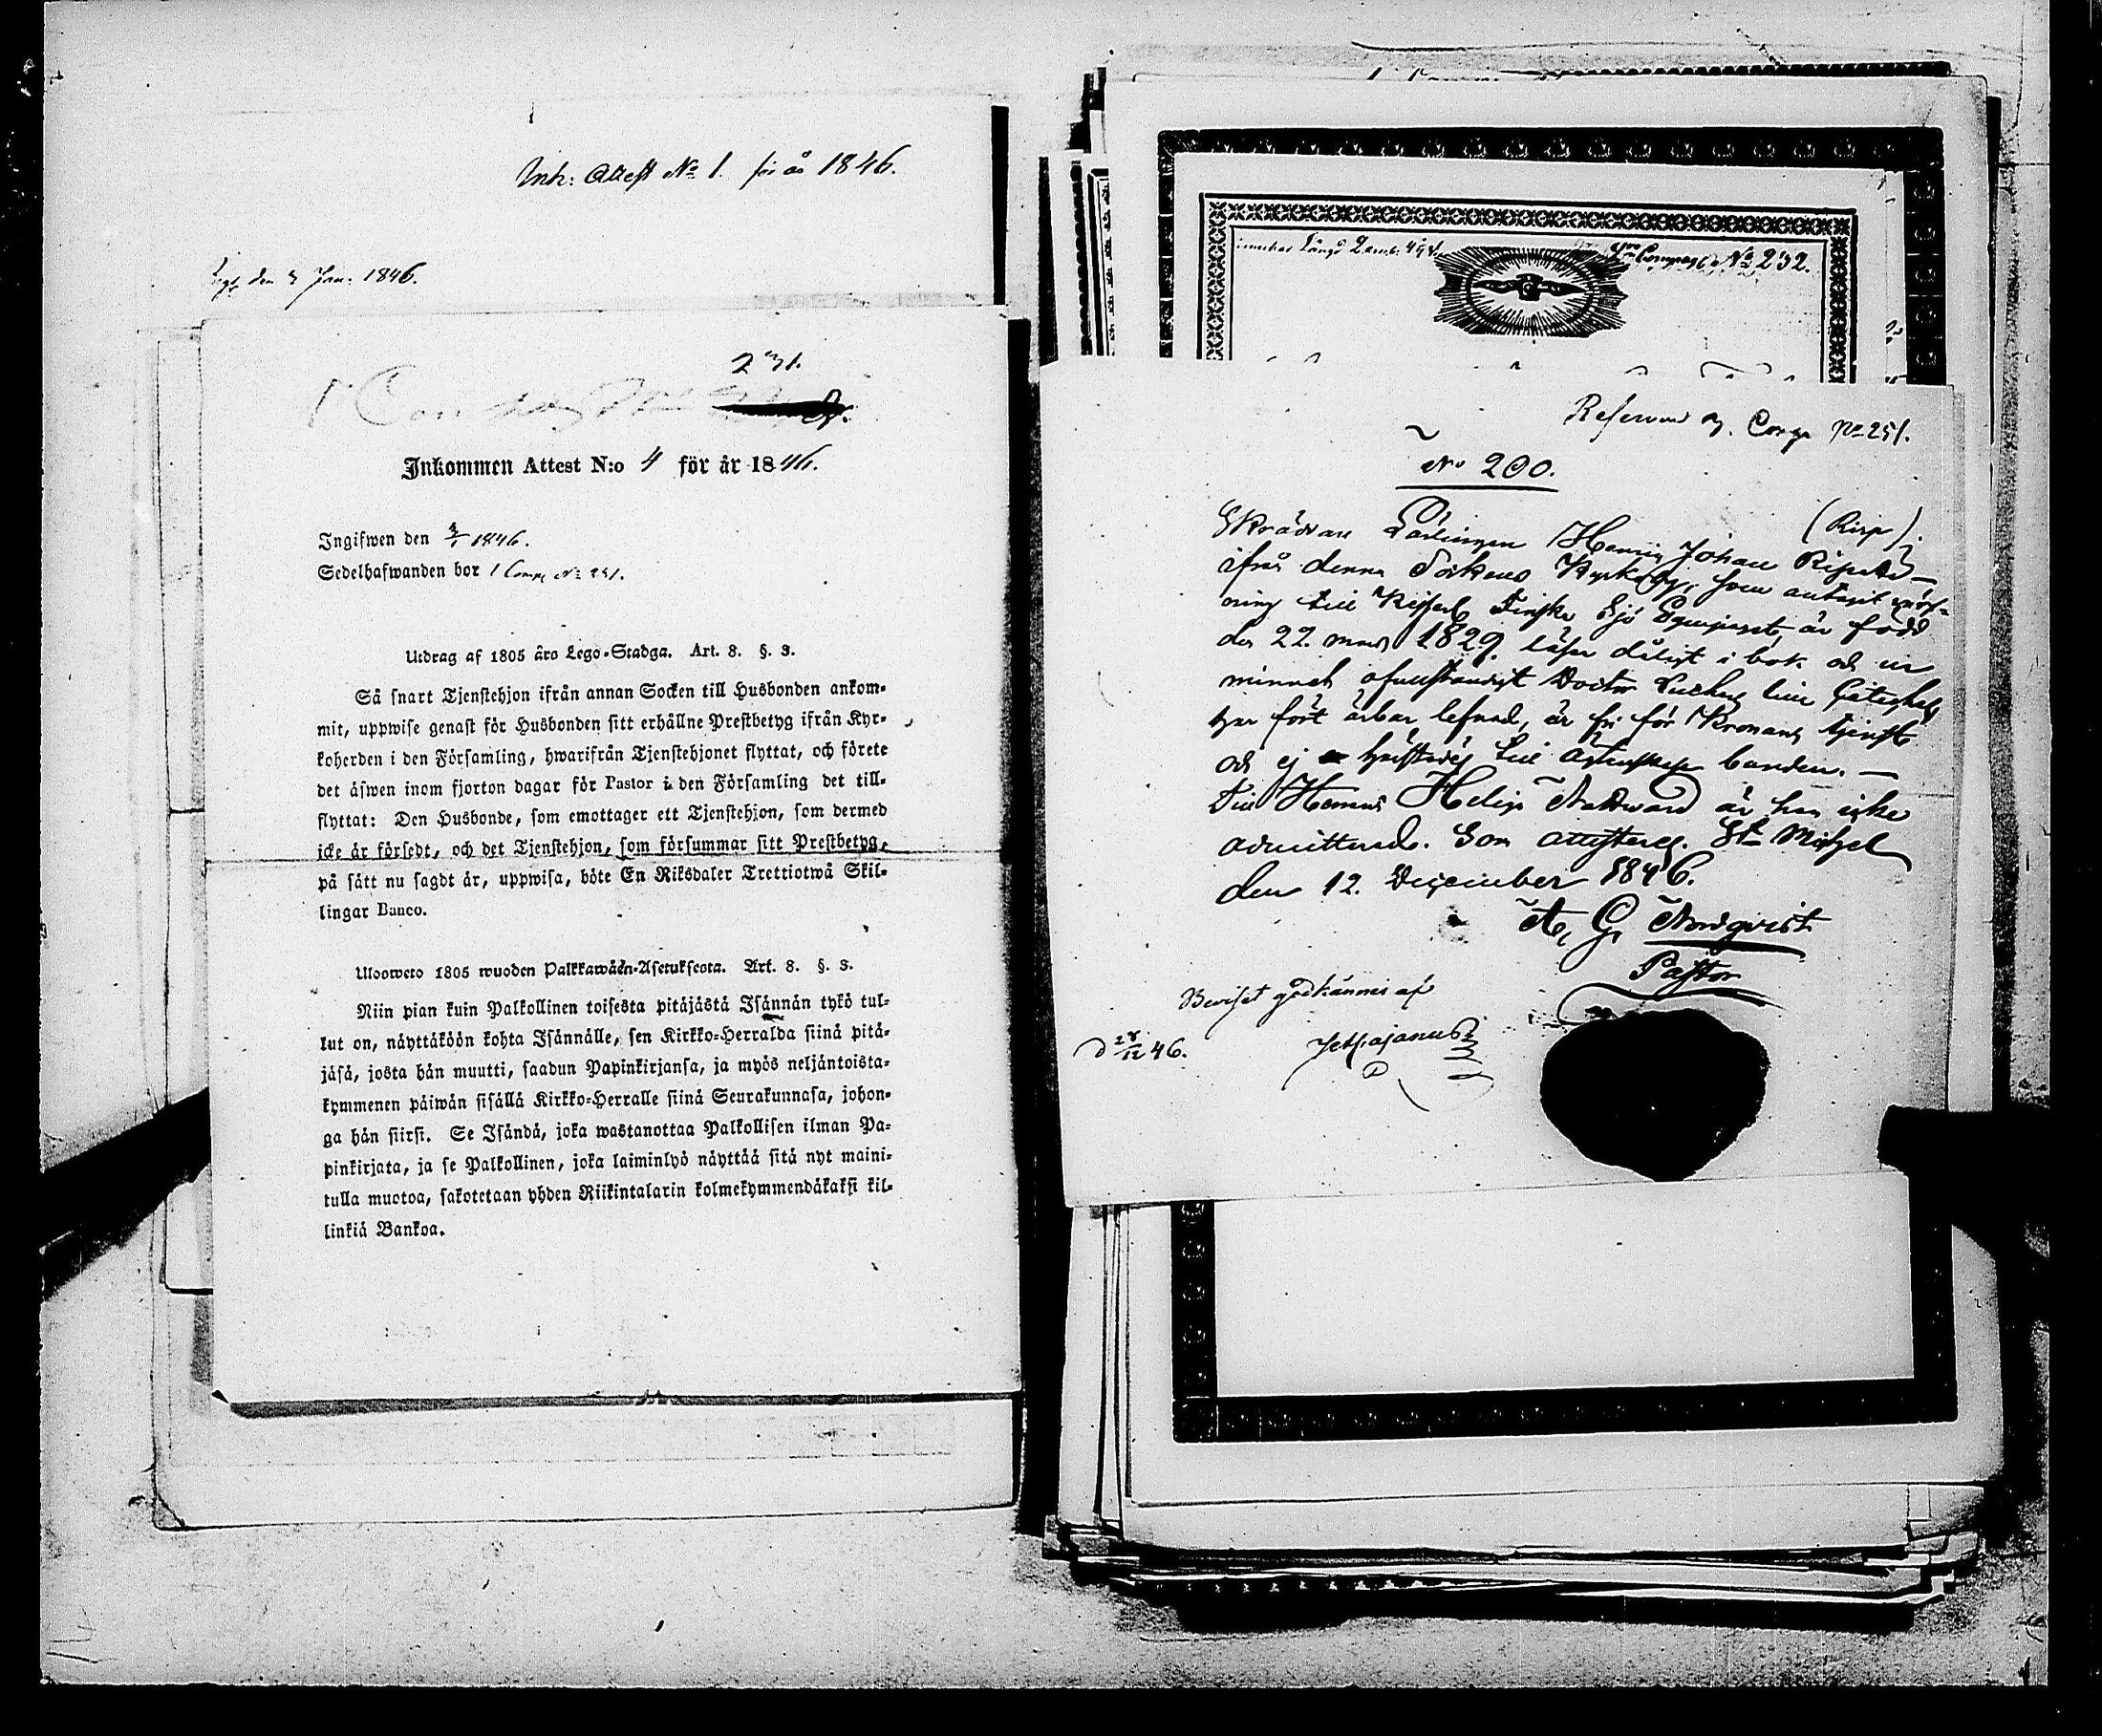 Ink: Attest No 1. för år 1846.
den 3 Jan. 1846.
231.
Inkommen Attest N:o 4 för år 1846.
Ingifwen den 3/1 1846.
Sedelhafwanden bor 1 Comp. No 231.
Utdrag af 1805 års Lego-Stadga. Art. 8. §. 3.
Så snart Tjenstehjon ifrån annan Socken till Husbonden ankom-
mit, uppwise genast för Husbonden sitt erhållne Prestbetyg ifrån Kyr-
koherden i den Församling, hwarifrån Tjenstehjonet flyttat, och förete
det äfwen inom fjorton dagar för Pastor i den Församling det till-
flyttat: Den Husbonde, som emottager ett Tjenstehjon, som dermed
icke är försedt, och det Tjenstehjon, som försummar sitt Prestbetyg,
på sätt nu sagdt är, uppwisa, böte En Riksdaler Trettiotwå Skil-
lingar Banco.
Uloosweto 1805 wuoden Palkkawäen-Asetuksesta. Art. 8. §. 3.
Niin pian kuin Palkollinen toisesta pitäjästä Isännän tykö tul-
lut on, näyttäköön kohta Isännälle, sen Kirkko-Herralda siinä pitä-
jäsä, josta hän muutti, saadun Papinkirjansa, ja myös neljäntoista-
kymmenen päiwän sisällä Kirkko-Herralle siinä Seurakunnasa, johon-
ga hän siirsi. Se Isändä, joka wastanottaa Palkollisen ilman Pa-
pinkirjata, ja se Palkollinen, joka laiminlyö näyttää sitä nyt maini-
tulla muotoa, sakotetaan yhden Riikintalarin kolmekymmendäkaksi kil-
linkiä Bankoa.
Längd
No 232.
No 251.
No 200.
Skräddare Lärlingen Henric Johan (Risp)
ifrån denna Sockens som antagit värf-
ning till Finska Sjö Equipaget, är född
den 22. mars 1829. läser dåligt i bok och ur
minnet
har fört ärbar lefnad, är fri för Kronans tjenst
och ej häftad till äktenskaps banden. —
Till Herrans Heliga Nattward är han icke
admitterad. Som attesteras. St Michel
den 12. December 1846.
A. G. Nordqvist
Pastor
Beviset godkännes af
d 28/12 46.